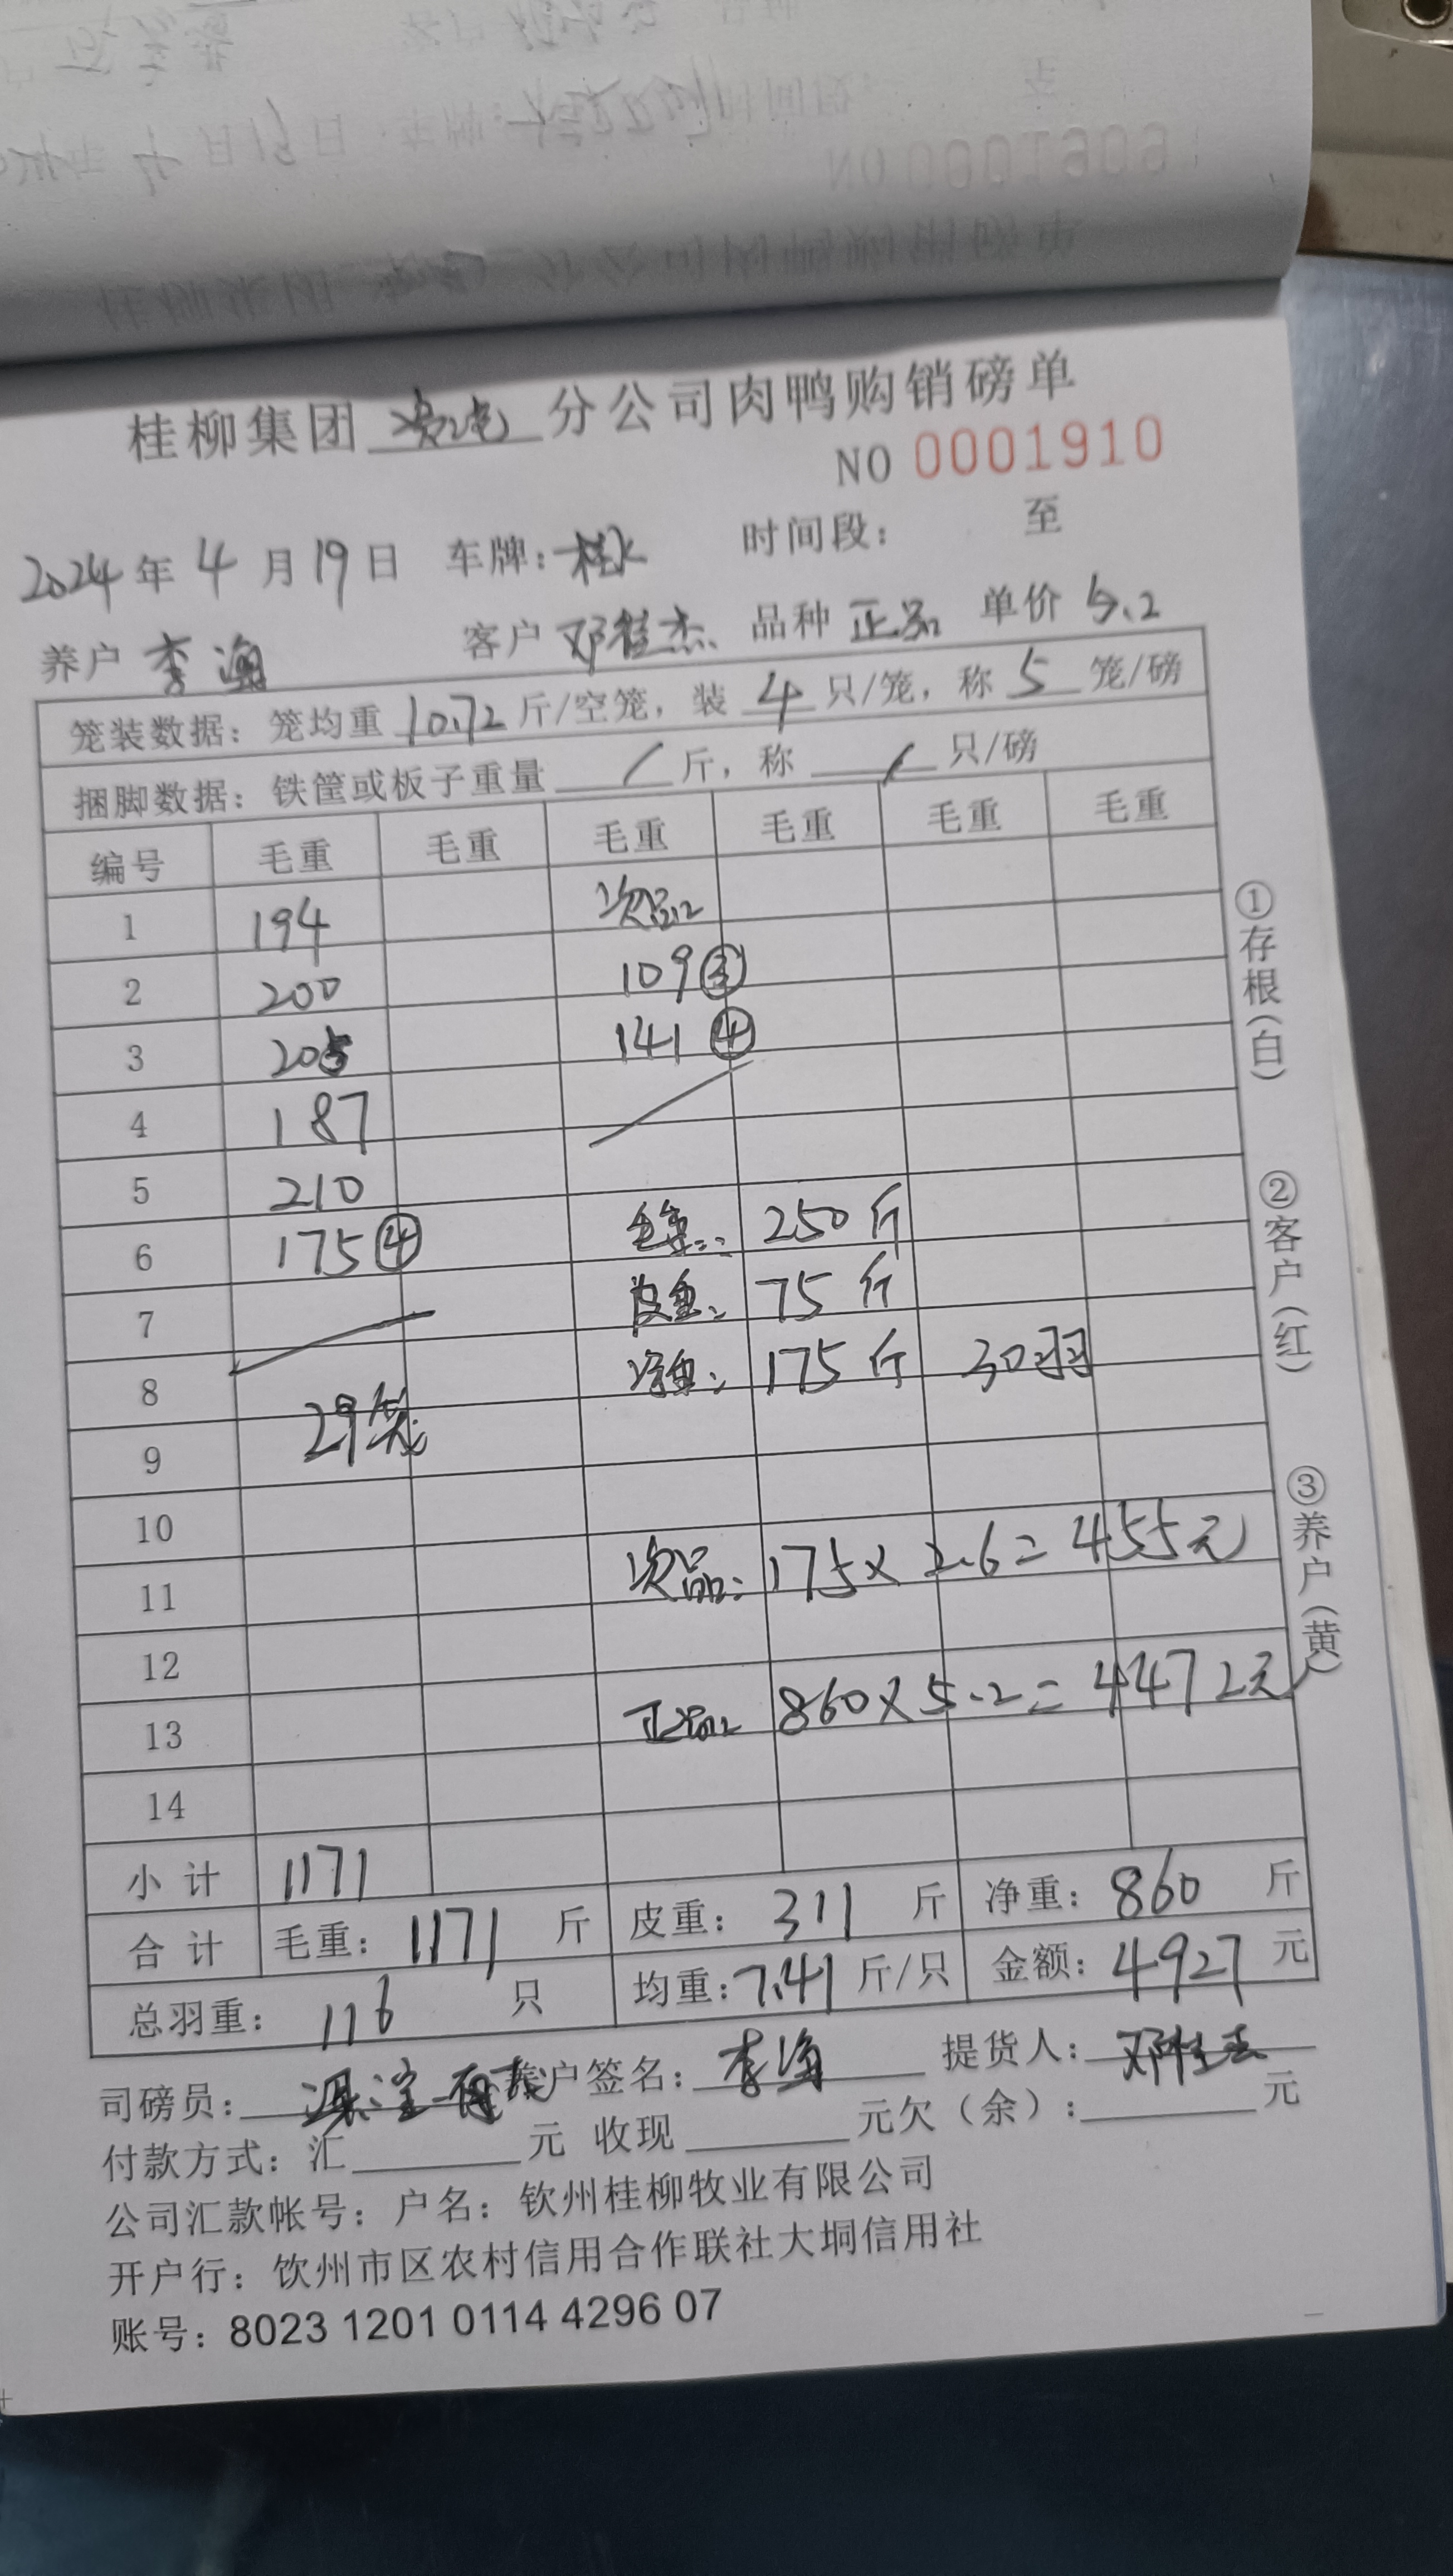 桂柳集团 分公司肉鸭购销磅单
NO 0001910
2024年4月19日 车牌: 时间段: 至
养户 李海 客户 邓桂杰 品种 正品 单价 5.2
笼装数据: 笼均重 10.72 斤/空笼, 装 4 只/笼, 称 5 笼/磅
捆脚数据: 铁筐或板子重量 / 斤, 称 / 只/磅
编号 毛重 毛重 毛重 毛重 毛重 毛重
1 194 次品:
2 200 109③
3 205 141④
4 187
5 210
6 175④ 毛重: 250斤
7 皮重: 75斤
8 净重: 175斤 30羽
9 29笼
10
11 次品: 175×2.6=455元
12
13 正品: 860×5.2=4472元
14
小计 1171
合计 毛重: 1171 斤 皮重: 311 斤 净重: 860 斤
总羽重: 116 只 均重: 7.41 斤/只 金额: 4927 元
司磅员: 养户签名: 李海 提货人: 邓桂杰
付款方式: 汇 元 收现 元欠(余): 元
公司汇款帐号: 户名: 钦州桂柳牧业有限公司
开户行: 钦州市区农村信用合作联社大垌信用社
账号: 8023 1201 0114 4296 07
①存根(白)
②客户(红)
③养户(黄)